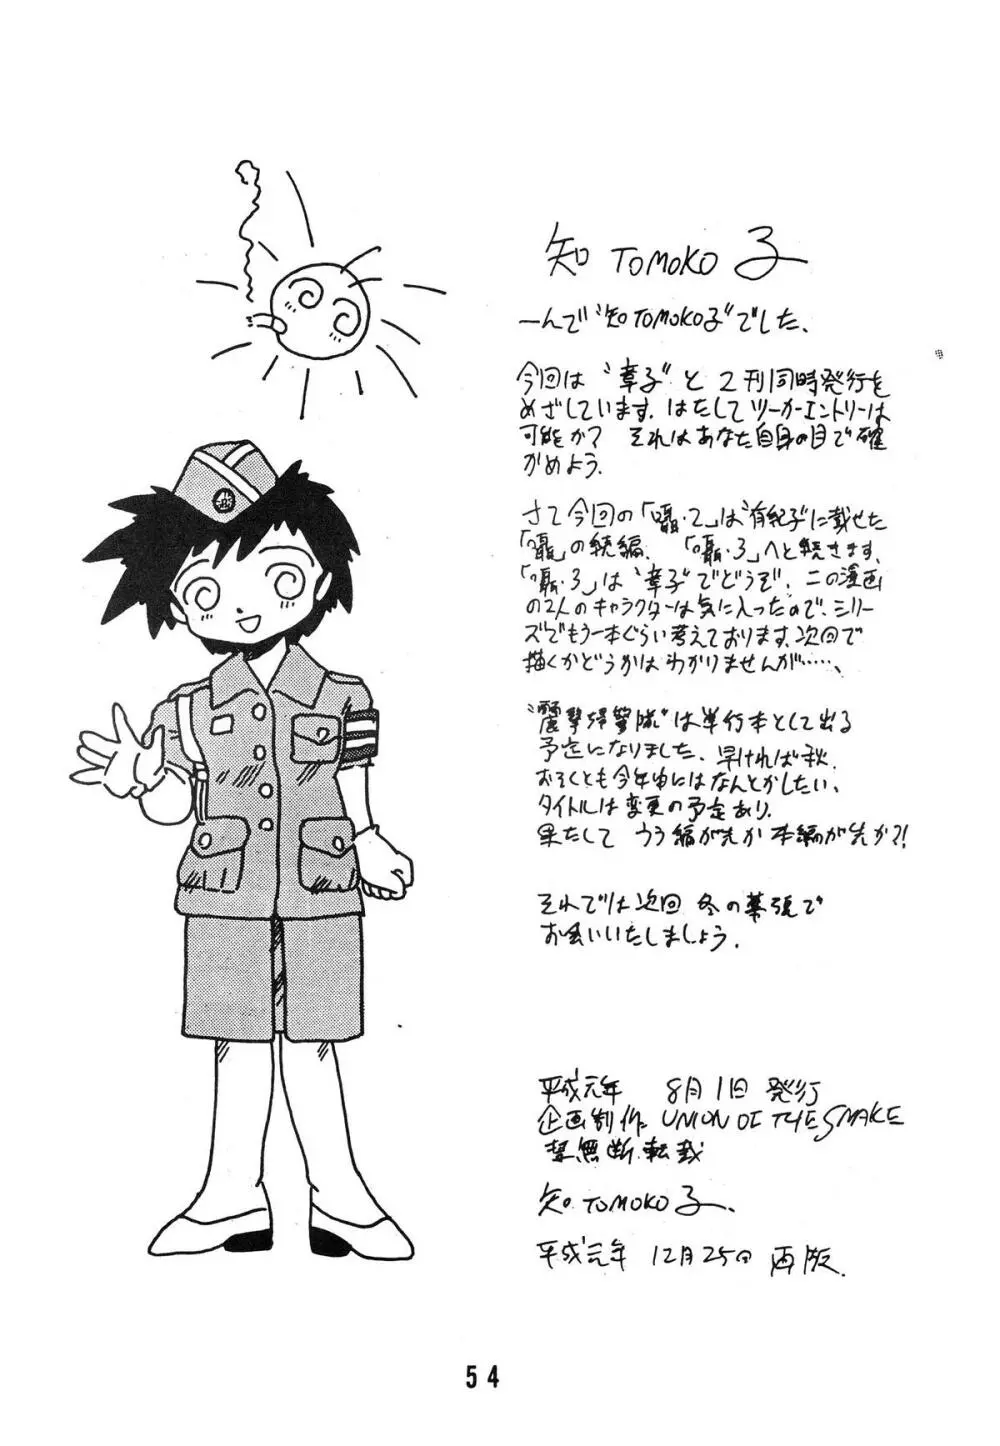 知 TOMOKO 子
ーんで"知TOMOKO子"でした、
今回は"幸子"と2刊同時発行を
めざしています. はたしてツーカーエントリーは
可能か? それはあなた自身の目で確
かめよう.
さて今回の「囁・2」は"有紀子"に載せた
「囁」の続編、「囁・3」へと続きます、
「囁・3」は"幸子"でどうぞ、この漫画
の2人のキャラクターは気に入ったので、シリー
ズでもう一本ぐらい考えております、次回で
描くかどうかはわかりませんが……、
は単行本として出る
予定になりました、早ければ秋、
おそくとも今年中にはなんとかしたい、
タイトルは変更の予定あり、
果たして うら編が先か 本編が先か?!
それでは次回 冬の幕張で
お会いいたしましょう.
平成元年 8月1日 発行
企画制作 UNION OF THE SNAKE
禁無断転載
知 TOMOKO 子.
平成元年 12月25日 再版.
54